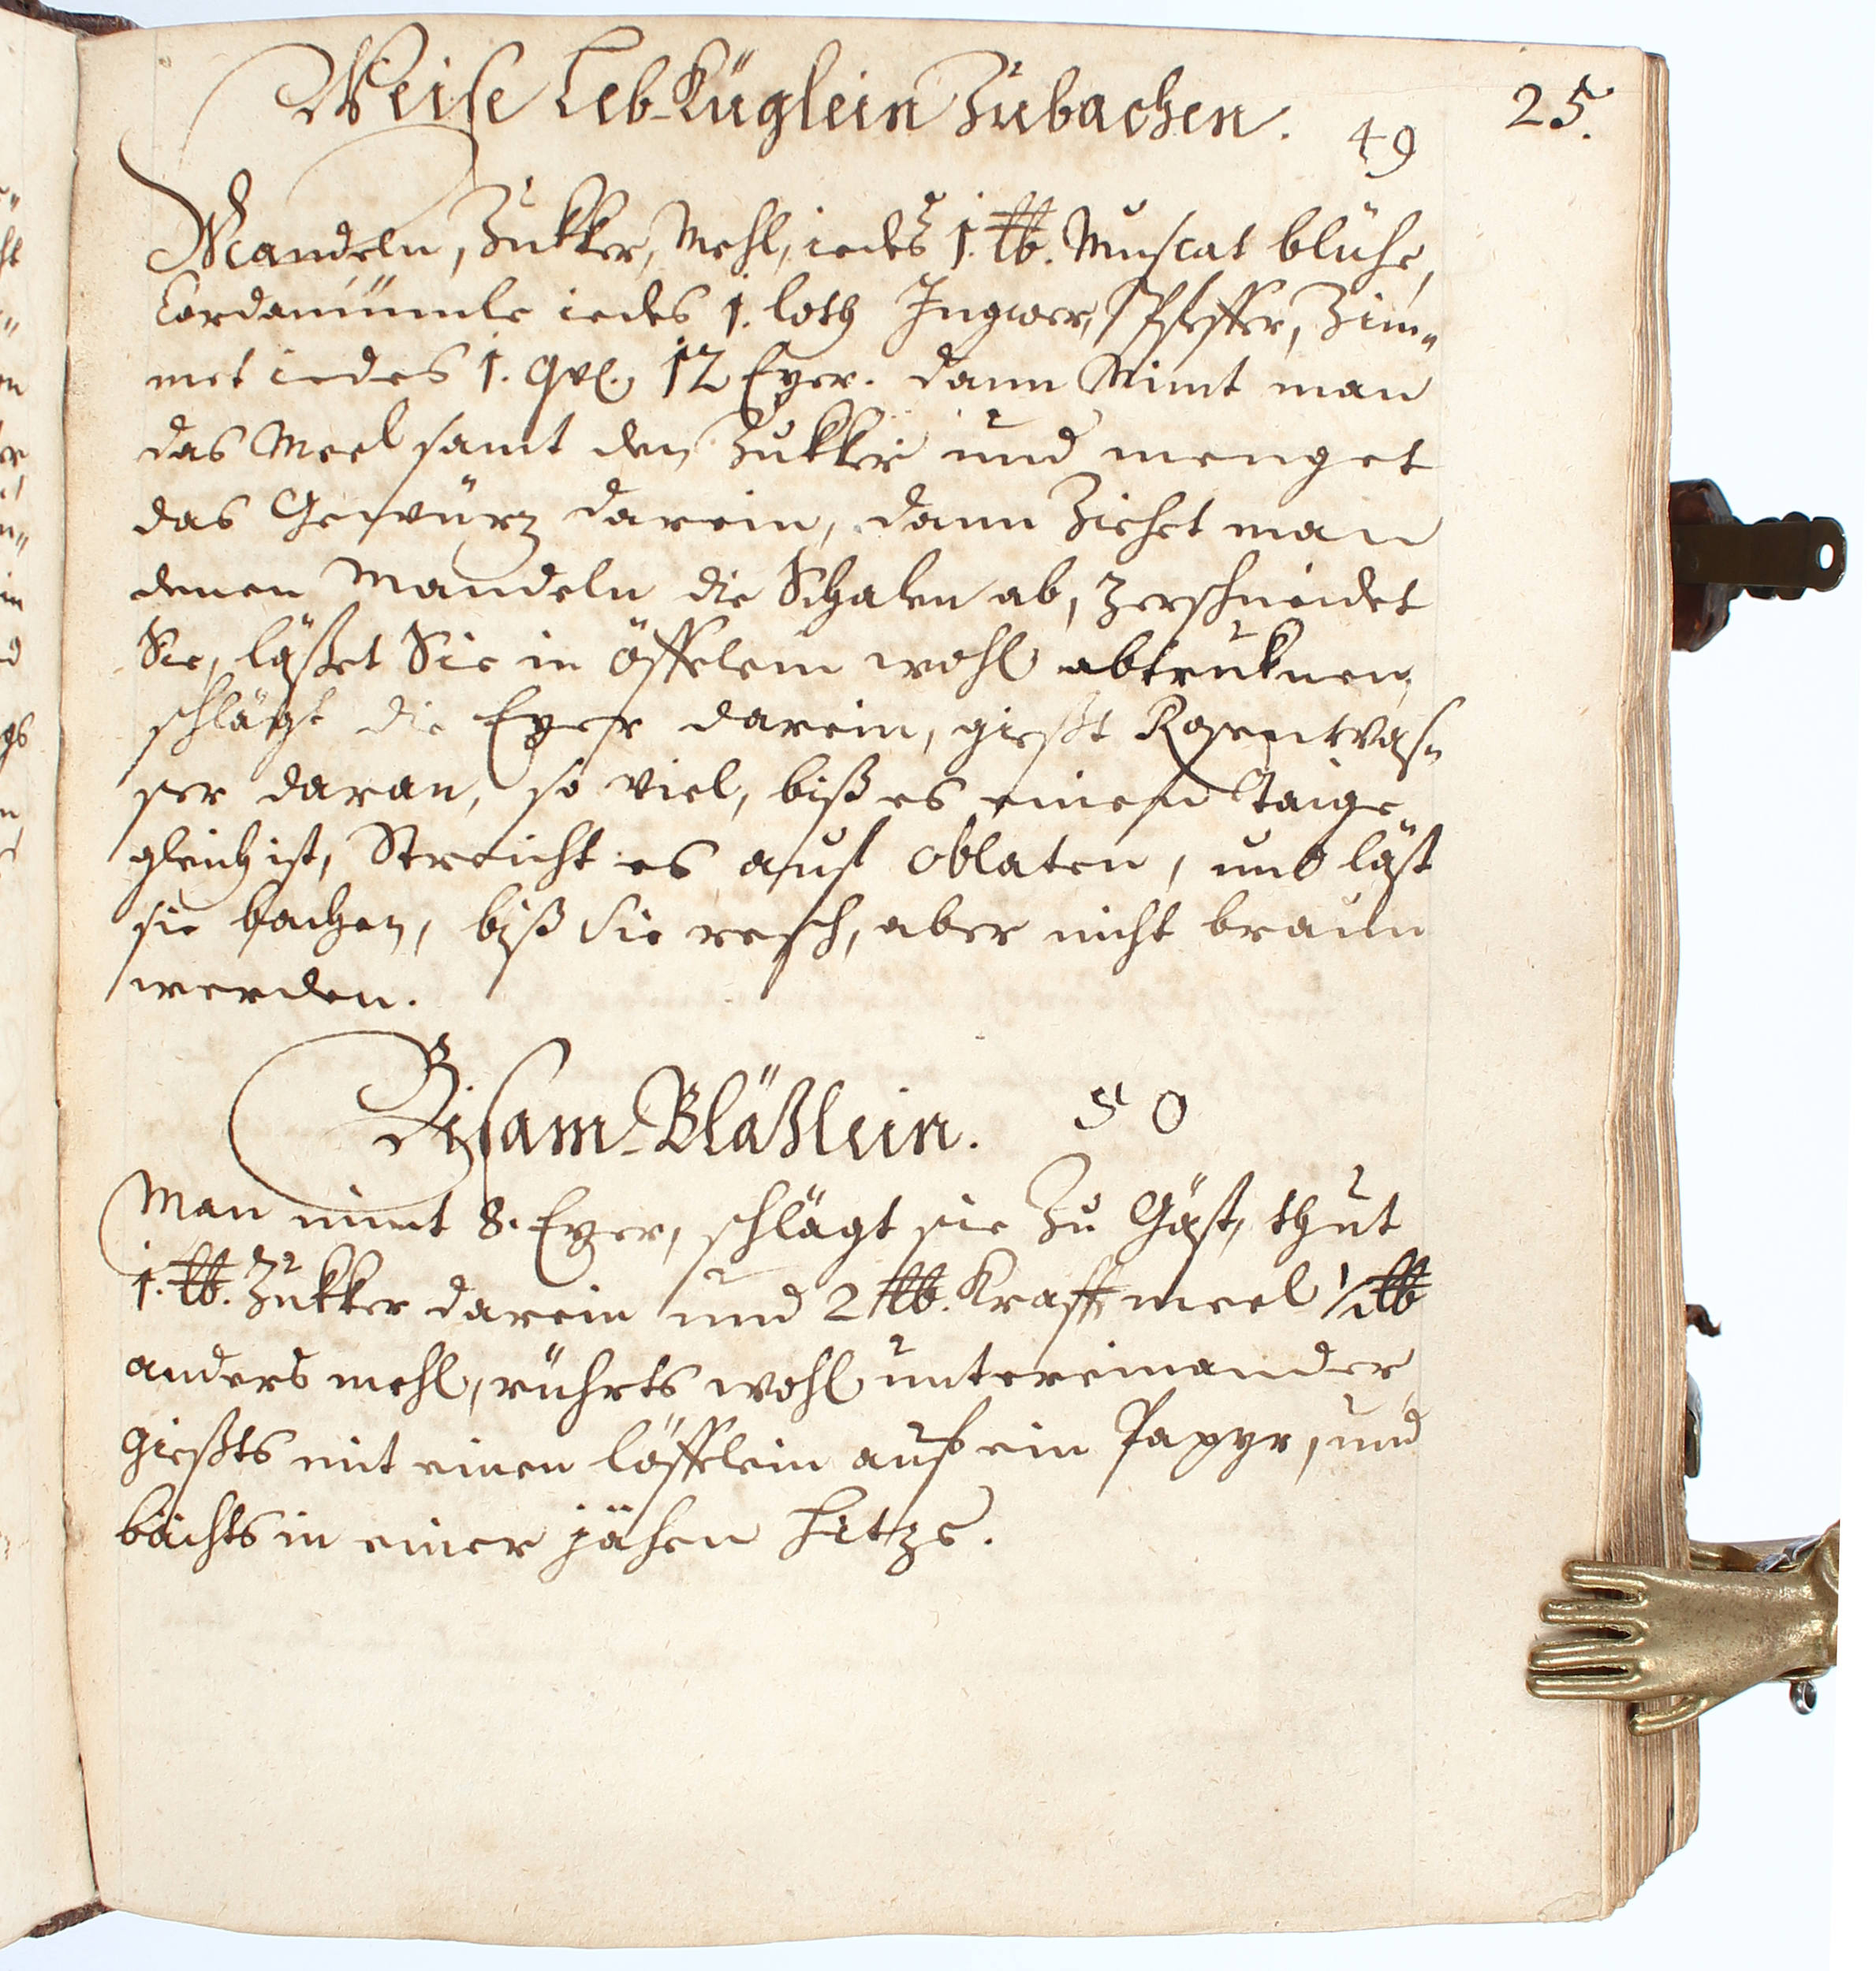 Weise Leb-Küglein Zubachen.
49
25.
Mandeln, Zukker, Mehl, iedes 1. ℔. Muscat blühe,
Cardamümle iedes 1. loth Ingwer, Pfeffer, Zim„
met iedes 1. Qvl. 12 Eyer. dann Nimt man
das Meel samt den Zukker und menget
das Gewürz darein, dann Ziehet man
denen Mandeln die Schalen ab, zerschneidet
Sie, läßet Sie in öffelein wohl abtruknen,
schlägt die Eyer darein, gießt Rosentwas„
ser daran, so viel, biß es einem Taige
gleich ist, Streicht es auf oblaten, und läst
sie bachen, biß Sie resch, aber nicht braun
werden.
Bisam-Bläßlein. 50
Man nimt 8. Eyer, schlägt sie Zu Gäst, thut
1. ℔. Zukker darein und 2 ℔. Krafft meel ½ ℔
anders mehl, rührts wohl untereinander
gießts mit einen löffelein auf ein Papyr, und
bächts in einer jähen Hitze.